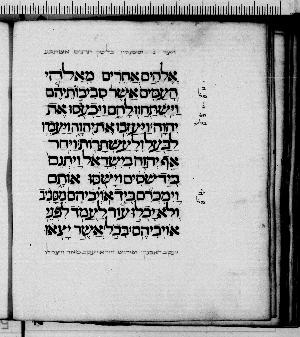 אלהים אחרים מאלהי
העמים אשר סביבותיהם
וישתחוו להם ויכעסו את
יהוה ויעזבו את יהוה ויעבדו
לבעל ולעשתרות ויחר
אף יהוה בישראל ויתנם
ביד שסים וישסו אותם
וימכרם ביד אויביהם מסביב
ולא יכלו עוד לעמד לפני
אויביהם בכל אשר יצאו